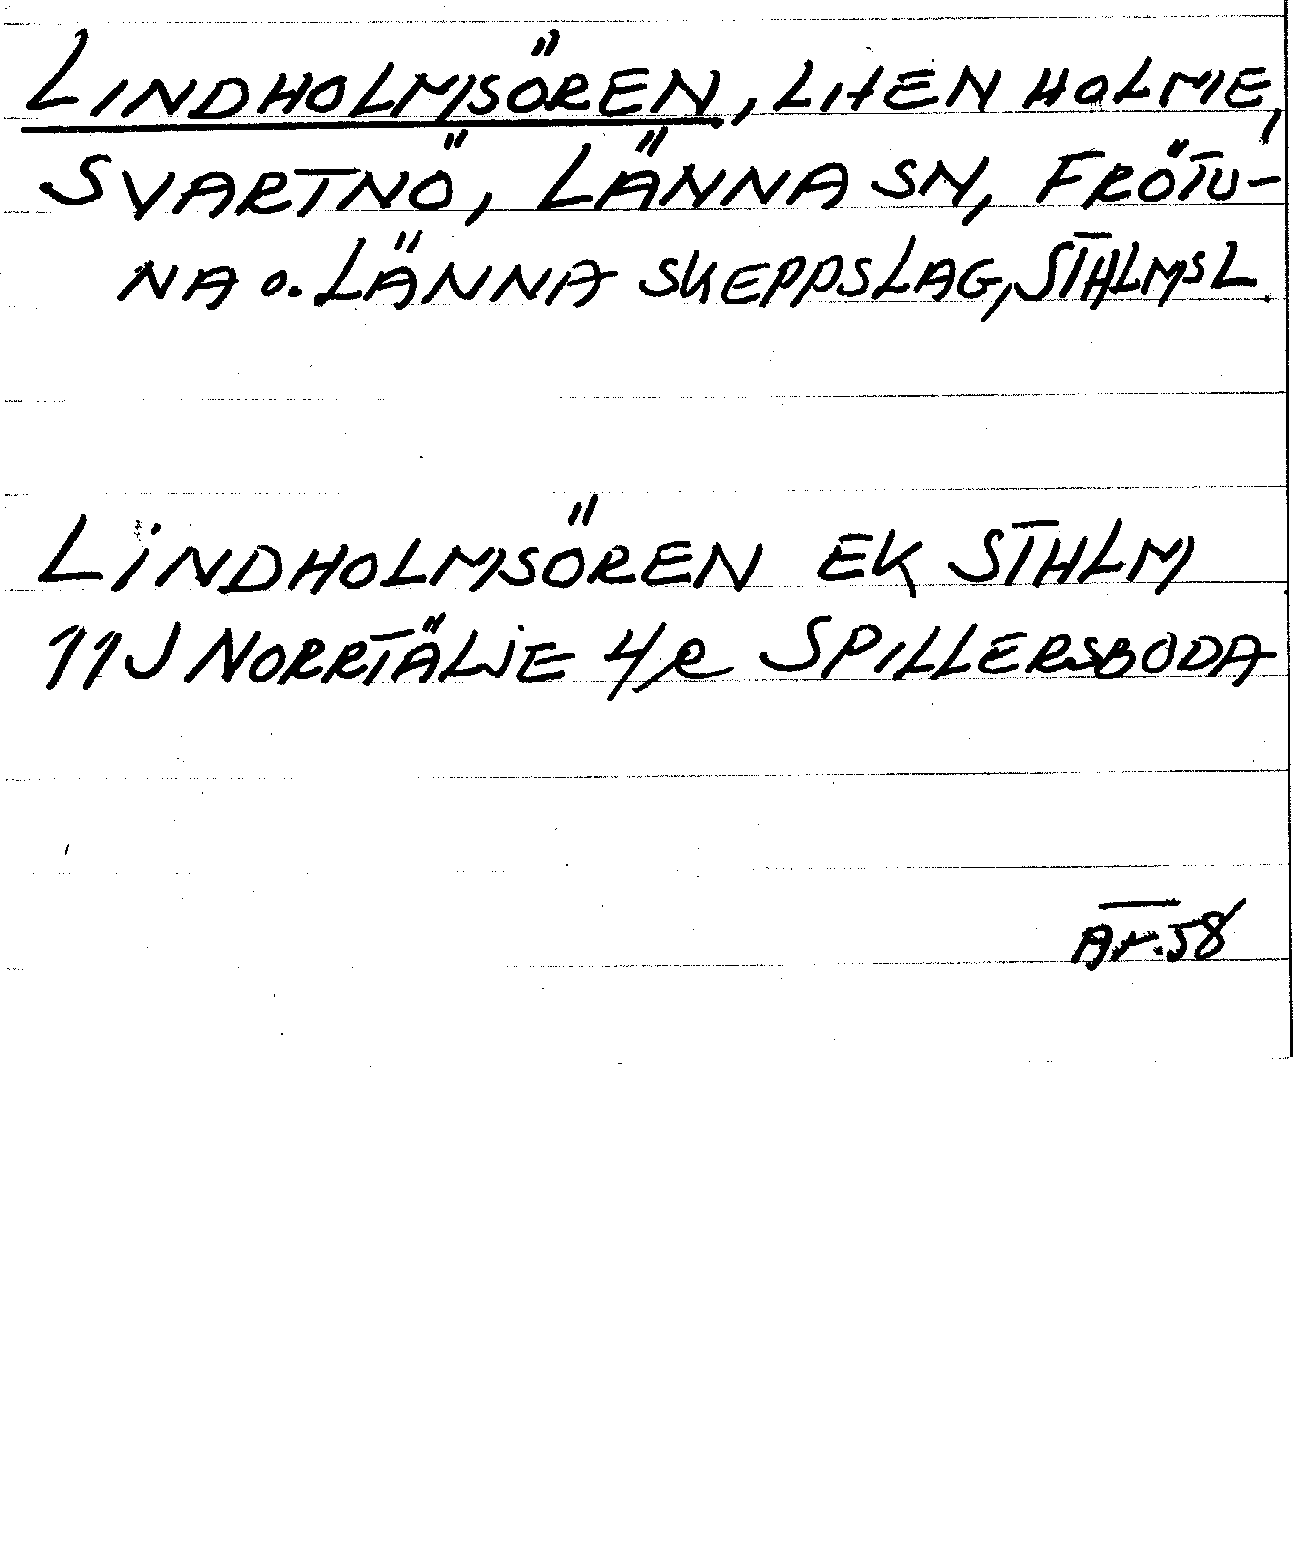 LINDHOLMSÖREN, LITEN HOLME,
SVARTNÖ, LÄNNA SN, FRÖTU-
NA o. LÄNNA SKEPPSLAG, STHLMS L.
LINDHOLMSÖREN EK STHLM
11J NORRTÄLJE 4/e SPILLERSBODA